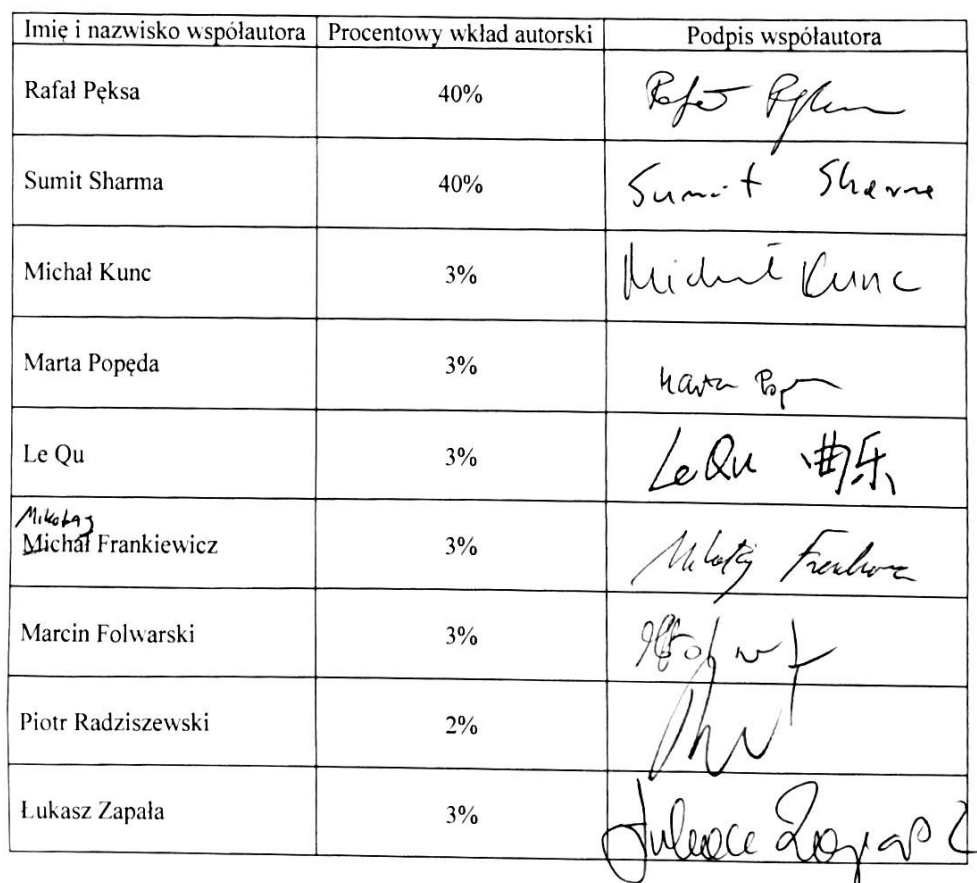 Imię i nazwisko współautora Procentowy wkład autorski Podpis współautora
Rafał Pęksa 40%
Sumit Sharma 40% Sumit Sharma
Michał Kunc 3% Michał Kunc
Marta Popęda 3% Marta
Le Qu 3% Le Qu 曲乐
Mikołaj
Michał Frankiewicz 3% Mikołaj
Marcin Folwarski 3%
Piotr Radziszewski 2%
Łukasz Zapała 3%